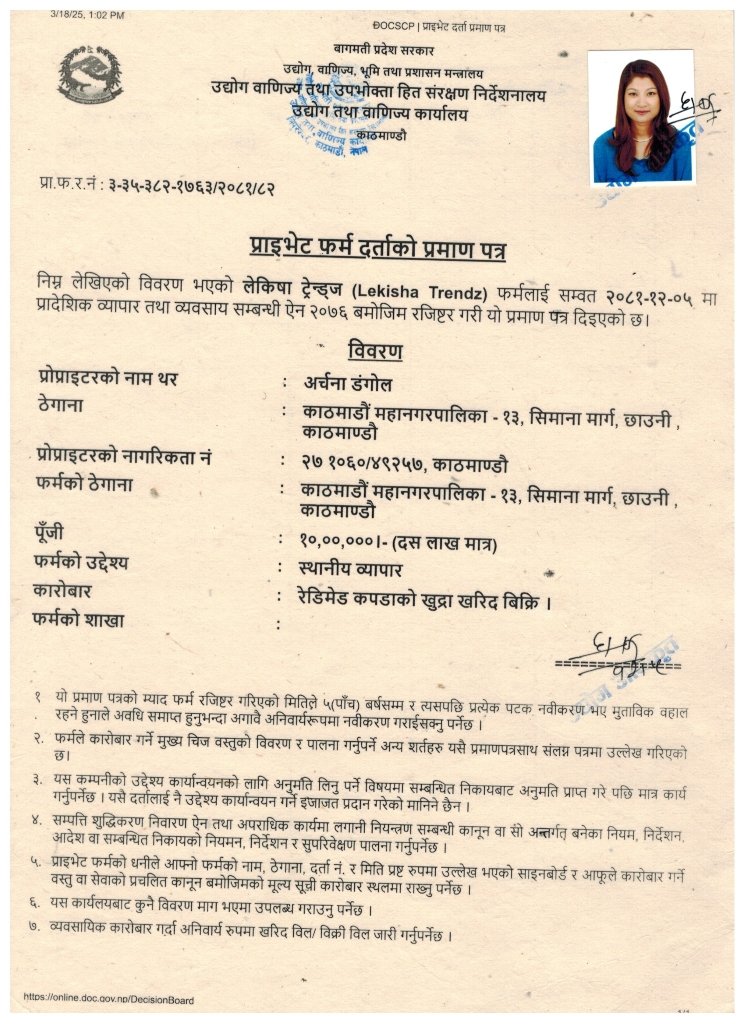 3/18/25, 1:02 PM
DOCSCP | प्राइभेट दर्ता प्रमाण पत्र
बागमती प्रदेश सरकार
उद्योग, वाणिज्य, भूमि तथा प्रशासन मन्त्रालय
उद्योग वाणिज्य तथा उपभोक्ता हित संरक्षण निर्देशनालय
उद्योग तथा वाणिज्य कार्यालय
काठमाण्डौ
प्रा.फ.र.नं : ३-३५-३८२-१७६३/२०८१/८२
प्राइभेट फर्म दर्ताको प्रमाण पत्र
निम्न लेखिएको विवरण भएको लेकिषा ट्रेन्ड्ज (Lekisha Trendz) फर्मलाई सम्वत २०८१-१२-०५ मा
प्रादेशिक व्यापार तथा व्यवसाय सम्बन्धी ऐन २०७६ बमोजिम रजिष्टर गरी यो प्रमाण पत्र दिइएको छ।
विवरण
प्रोप्राइटरको नाम थर : अर्चना डंगोल
ठेगाना : काठमाडौं महानगरपालिका - १३, सिमाना मार्ग, छाउनी ,
काठमाण्डौ
प्रोप्राइटरको नागरिकता नं : २७ १०६०/४९२५७, काठमाण्डौ
फर्मको ठेगाना : काठमाडौं महानगरपालिका - १३, सिमाना मार्ग, छाउनी ,
काठमाण्डौ
पूँजी : १०,००,०००।- (दस लाख मात्र)
फर्मको उद्देश्य : स्थानीय व्यापार
कारोबार : रेडिमेड कपडाको खुद्रा खरिद बिक्रि ।
फर्मको शाखा :
१. यो प्रमाण पत्रको म्याद फर्म रजिष्टर गरिएको मितिले ५(पाँच) बर्षसम्म र त्यसपछि प्रत्येक पटक नवीकरण भए मुताविक वहाल
रहने हुनाले अवधि समाप्त हुनुभन्दा अगावै अनिवार्यरूपमा नवीकरण गराईसक्नु पर्नेछ ।
२. फर्मले कारोबार गर्ने मुख्य चिज वस्तुको विवरण र पालना गर्नुपर्ने अन्य शर्तहरु यसै प्रमाणपत्रसाथ संलग्न पत्रमा उल्लेख गरिएको
छ।
३. यस कम्पनीको उद्देश्य कार्यान्वयनको लागि अनुमति लिनु पर्ने विषयमा सम्बन्धित निकायबाट अनुमति प्राप्त गरे पछि मात्र कार्य
गर्नुपर्नेछ । यसै दर्तालाई नै उद्देश्य कार्यान्वयन गर्ने इजाजत प्रदान गरेको मानिने छैन ।
४. सम्पत्ति शुद्धिकरण निवारण ऐन तथा अपराधिक कार्यमा लगानी नियन्त्रण सम्बन्धी कानून वा सो अन्तर्गत् बनेका नियम, निर्देशन,
आदेश वा सम्बन्धित निकायको नियमन, निर्देशन र सुपरिवेक्षण पालना गर्नुपर्नेछ ।
५. प्राइभेट फर्मको धनीले आफ्नो फर्मको नाम, ठेगाना, दर्ता नं. र मिति प्रष्ट रुपमा उल्लेख भएको साइनबोर्ड र आफूले कारोबार गर्ने
वस्तु वा सेवाको प्रचलित कानून बमोजिमको मूल्य सूची कारोबार स्थलमा राख्नु पर्नेछ ।
६. यस कार्यलयबाट कुनै विवरण माग भएमा उपलब्ध गराउनु पर्नेछ ।
७. व्यवसायिक कारोबार गर्दा अनिवार्य रुपमा खरिद विल/ विक्री विल जारी गर्नुपर्नेछ ।
https://online.doc.gov.np/DecisionBoard
1/1